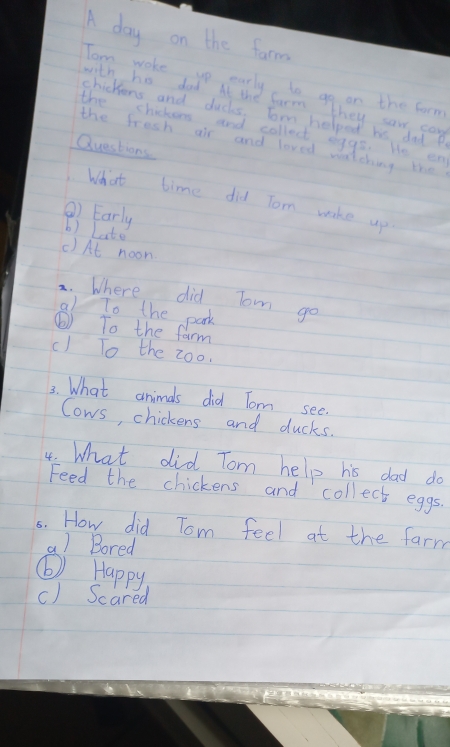 A day on the farm
Tom woke up early to go on the farm
with his dad At the farm they saw cow
chickens and ducks. Tom helped his dad
the chickens and collect eggs. He en
the fresh air and loved watching the
Questions
. What time did Tom wake up.
a) Early
b) Late
c) At noon
2. Where did Tom go
a) To the park
b) To the farm
c) To the zoo.
3. What animals did Tom see.
Cows, chickens and ducks.
4. What did Tom help his dad do
Feed the chickens and collect eggs.
5. How did Tom feel at the farm
a) Bored
b) Happy
c) Scared